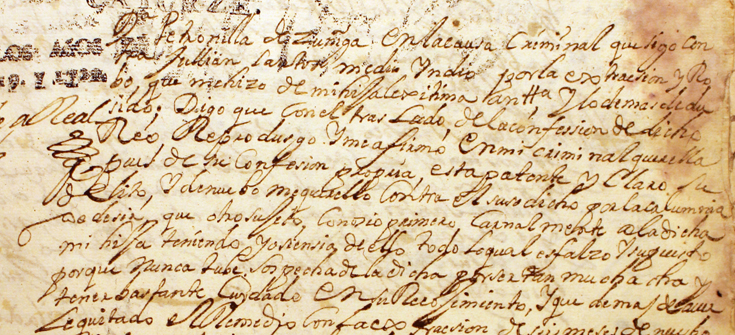 CATORZE
LOS AÑOS
19. y 1720.
Da Petronilla de Zuniga en la causa Criminal que sigo con
tra Jullian medio Yndio por la extraccion y Ro
bo, que me hizo de mi hija lexitima y lo demas dedu
sido; Digo que con el tras Lado de la confession de dicho
a Real
Reo Reprodusgo y me afirmo en mi criminal querella
pues de su confesion propria, esta patente y Claro, su
delito, y de nuebo me querello contra el suso dicho por la calumnia
de desir, que otro sujeto, Conosio primero, Carnalmente a la dicha
mi hija teniendo yo siensia de ello todo lo qual es falzo y supuesto
porque nunca tube sospecha de la dicha por ser tan muchacha y
tener bastante Cuydado en su Recojimiento, y que demas de
le quitado el Remedio con la de seis meses de